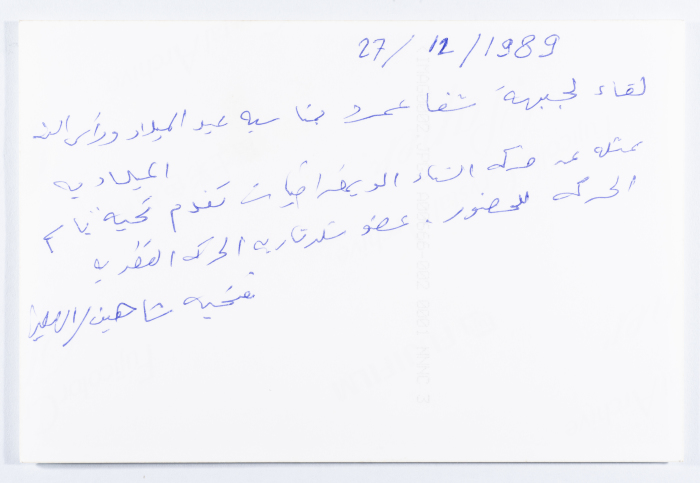 27/12/1989
لقاء لجبهة شفا عمرو بمناسبة عيد الميلاد ورأس السنة
الميلاديه
ممثله عن حركه النساء الديمقراطيات تقدم تحية باسم
الحركه للحضور. عضو سكرتاريه الحركه القطريه
فتحيه شاهين/